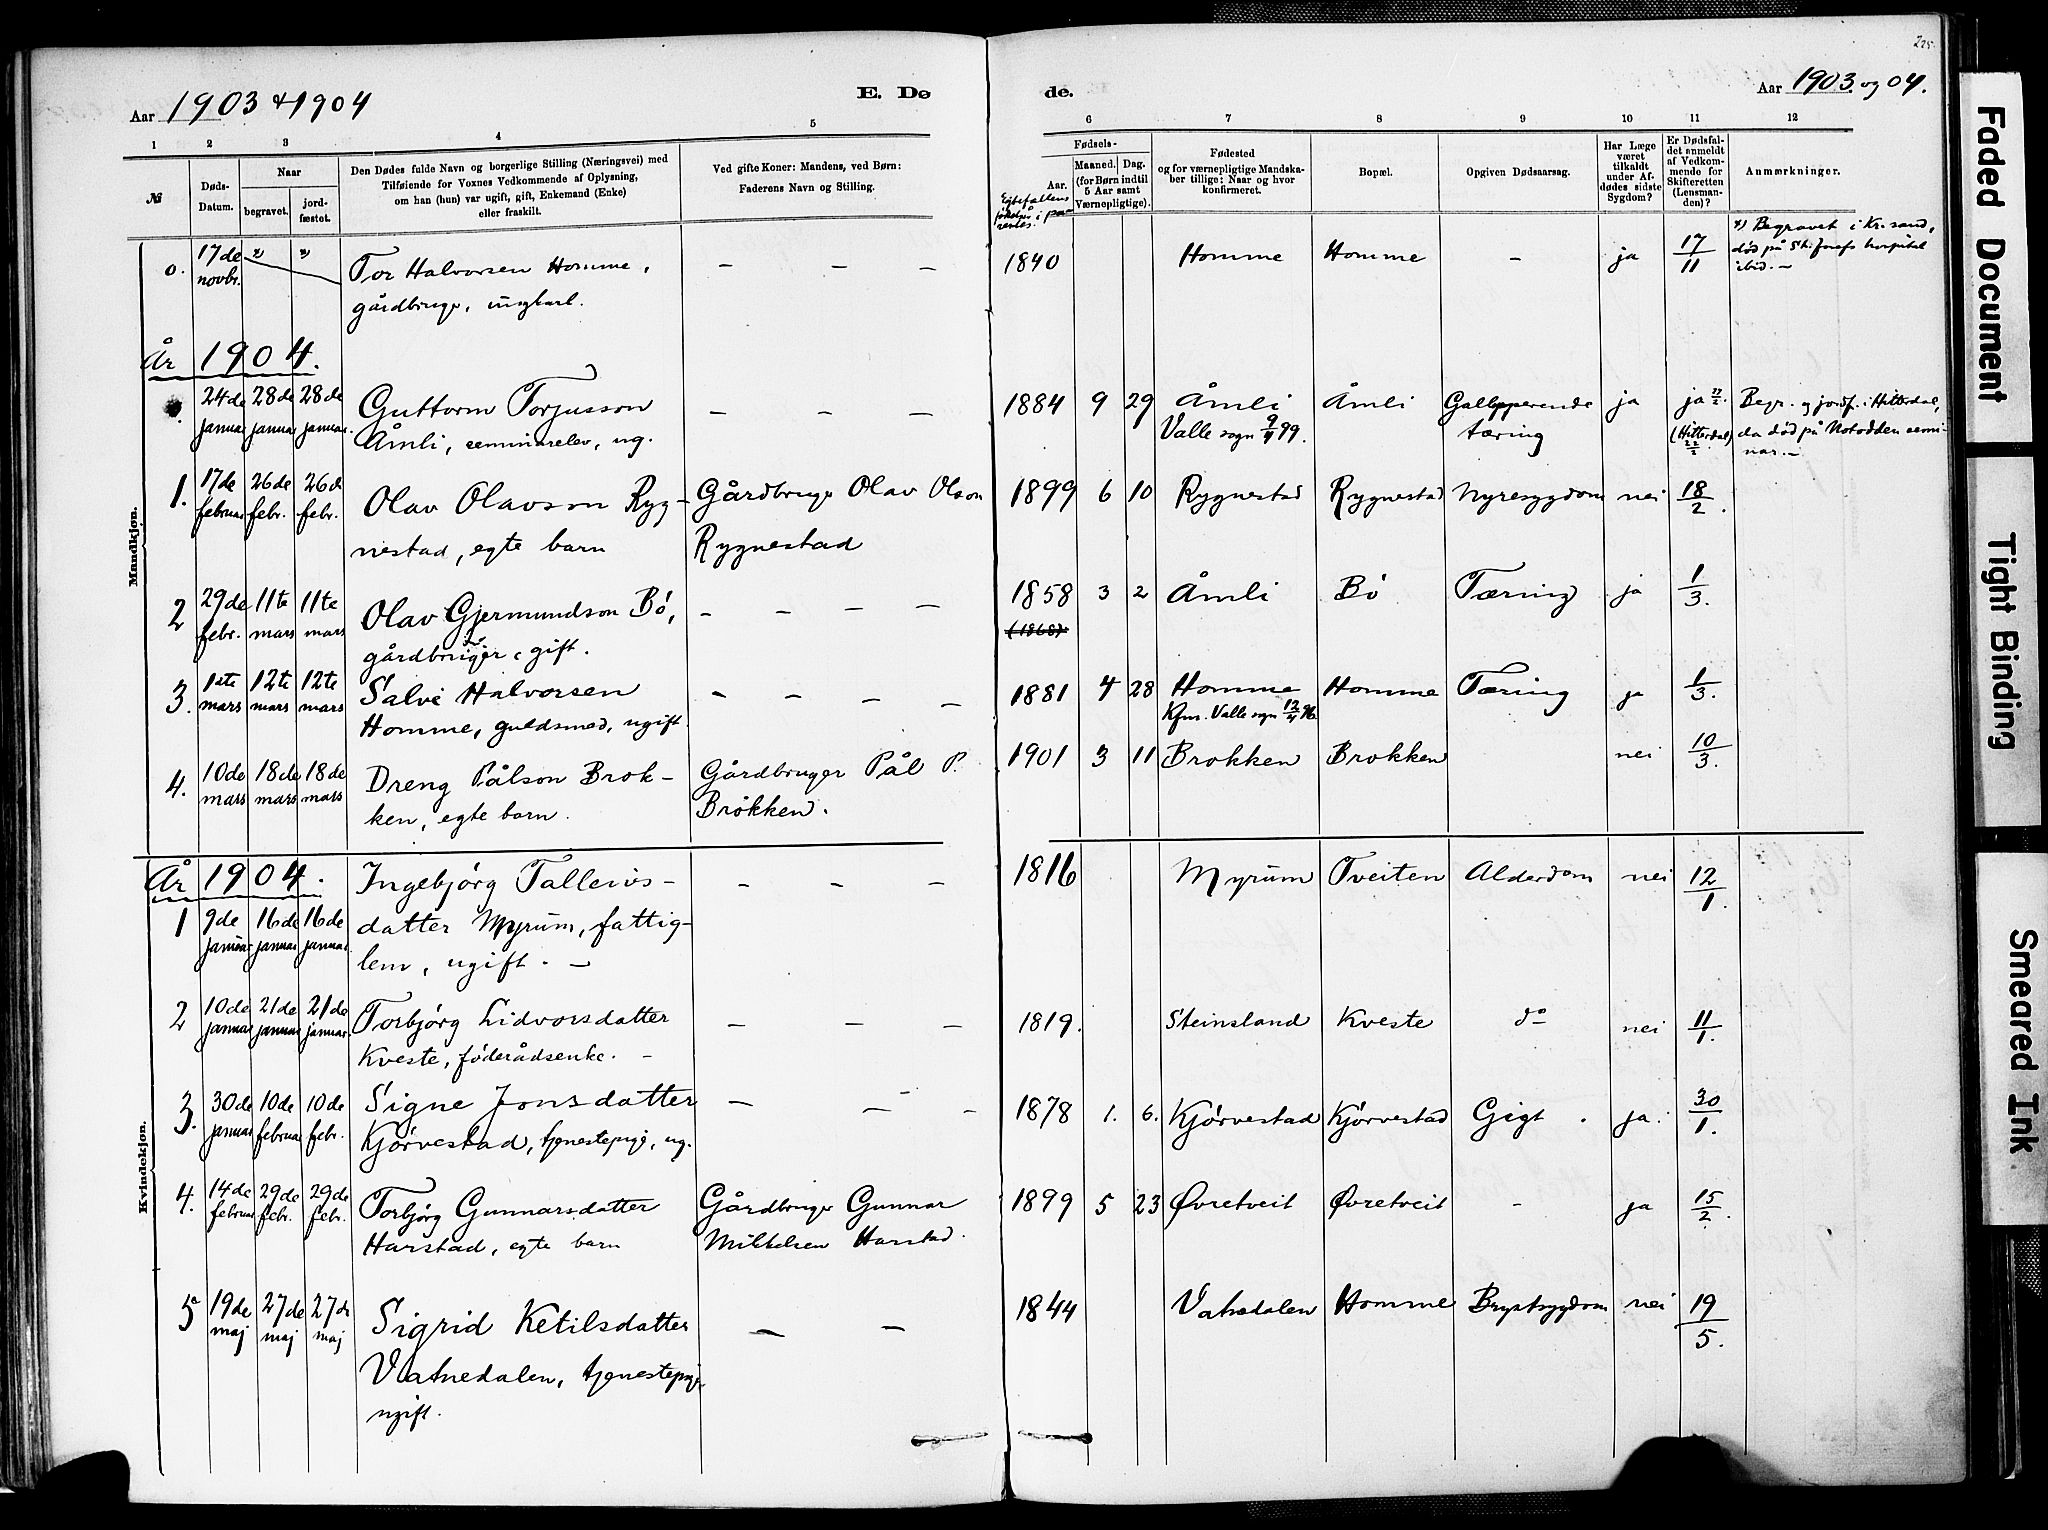 225.
Aar 1903 & 1904
E. Dø
de.
Aar 1903 og 04.
1 2 3 4 5 6 7 8 9 10 11 12
№
Døds-Datum.
Naar
begravet.
jord-fæstet.
Den Dødes fulde Navn og borgerlige Stilling (Næringsvei) med
Tilføiende for Voxnes Vedkommende af Oplysning,
om han (hun) var ugift, gift, Enkemand (Enke)
eller fraskilt.
Ved gifte Koner: Mandens, ved Børn:
Faderens Navn og Stilling.
Fødsels-
Aar.
Maaned. Dag.
(for Børn indtil
5 Aar samt
Værnepligtige).
Fødested
og for værnepligtige Mandska-
ber tillige: Naar og hvor
konfirmeret.
Bopæl.
Opgiven Dødsaarsag.
Har Læge
været
tilkaldt
under Af-
dødes sidste
Sygdom?
Er Dødsfal-
det anmeldt
af Vedkom-
mende for
Skifteretten
(Lensman-
den)?
Anmærkninger.
Mandkjøn.
o. 17de novbr. Tor Halvorsen Homme, — — — 1840 Homme Homme — ja 17/11 Begravet i Kr.sand,
gårdbruger, ungkarl. død på St. Josefs hospital
ibid. —
År 1904.
24de januar 28de januar 28de januar. Guttorm Torjusson — — — 1884 9 29 Åmli Åmli Gallopperende ja ja 22/2. Begr. og jordf. i Hitterdal,
Åmli, seminarelev, ug. Valle sogn 9/4 99. tæring (Hitterdal) 22/2 da død på Notodden semi-
nar. —
1. 17de februar 26de febr. 26de febr. Olav Olavson Ryg- Gårdbruger Olav Olson 1899 6 10 Rygnestad Rygnestad Nyresygdom nei 18/2.
nestad, egte barn Rygnestad
2 29de febr. 11te mars 11te mars Olav Gjermundson Bó, — — — — 1858 3 2 Åmli Bó Tæring ja 1/3.
gårdbruger, gift. (1868)
3. 1ste mars 12te mars 12te mars Salve Halvorsen — — — — 1881 4 28 Homme Homme Tæring ja 1/3.
Homme, guldsmed, ugift. Kfm. Valle sogn 12/4 96.
4. 10de mars 18de mars 18de mars Dreng Pålson Brok- Gårdbruger Pål P. 1901 3 11 Brokken Brokken nei 10/3.
ken, egte barn. Brokken.
Kvindekjøn.
År 1904. Ingebjórg Talleivs- — — — 1816 Myrum Tveiten Alderdom nei 12/1.
1 9de januar 16de januar 16de januar. datter Myrum, fattig-
lem, ugift. —
2 10de januar 21de januar 21de januar. Torbjórg Lidvorsdatter — — — 1819. Steinsland Kveste do nei 11/1.
Kveste, fóderådsenke. —
3. 30de januar 10de februar 10de febr. Signe Jonsdatter — — — 1878 1. 6. Kjórvestad Kjórvestad Gigt. ja. 30/1.
Kjórvestad, tjenestepige, ug.
4. 14de februar 29de febr. 29de febr. Torbjórg Gunnarsdatter Gårdbruger Gunnar 1899 5 23 Øvretveit Øvretveit — ja 15/2.
Harstad, egte barn Mikkelsen Harstad.
5 19de maj 27de maj 27de maj Sigrid Ketilsdatter — — 1844 Vatnedalen Homme Brystsygdom nei 19/5.
Vatnedalen, tjenestepige
ugift.
Faded Document
Tight Binding
Smeared Ink